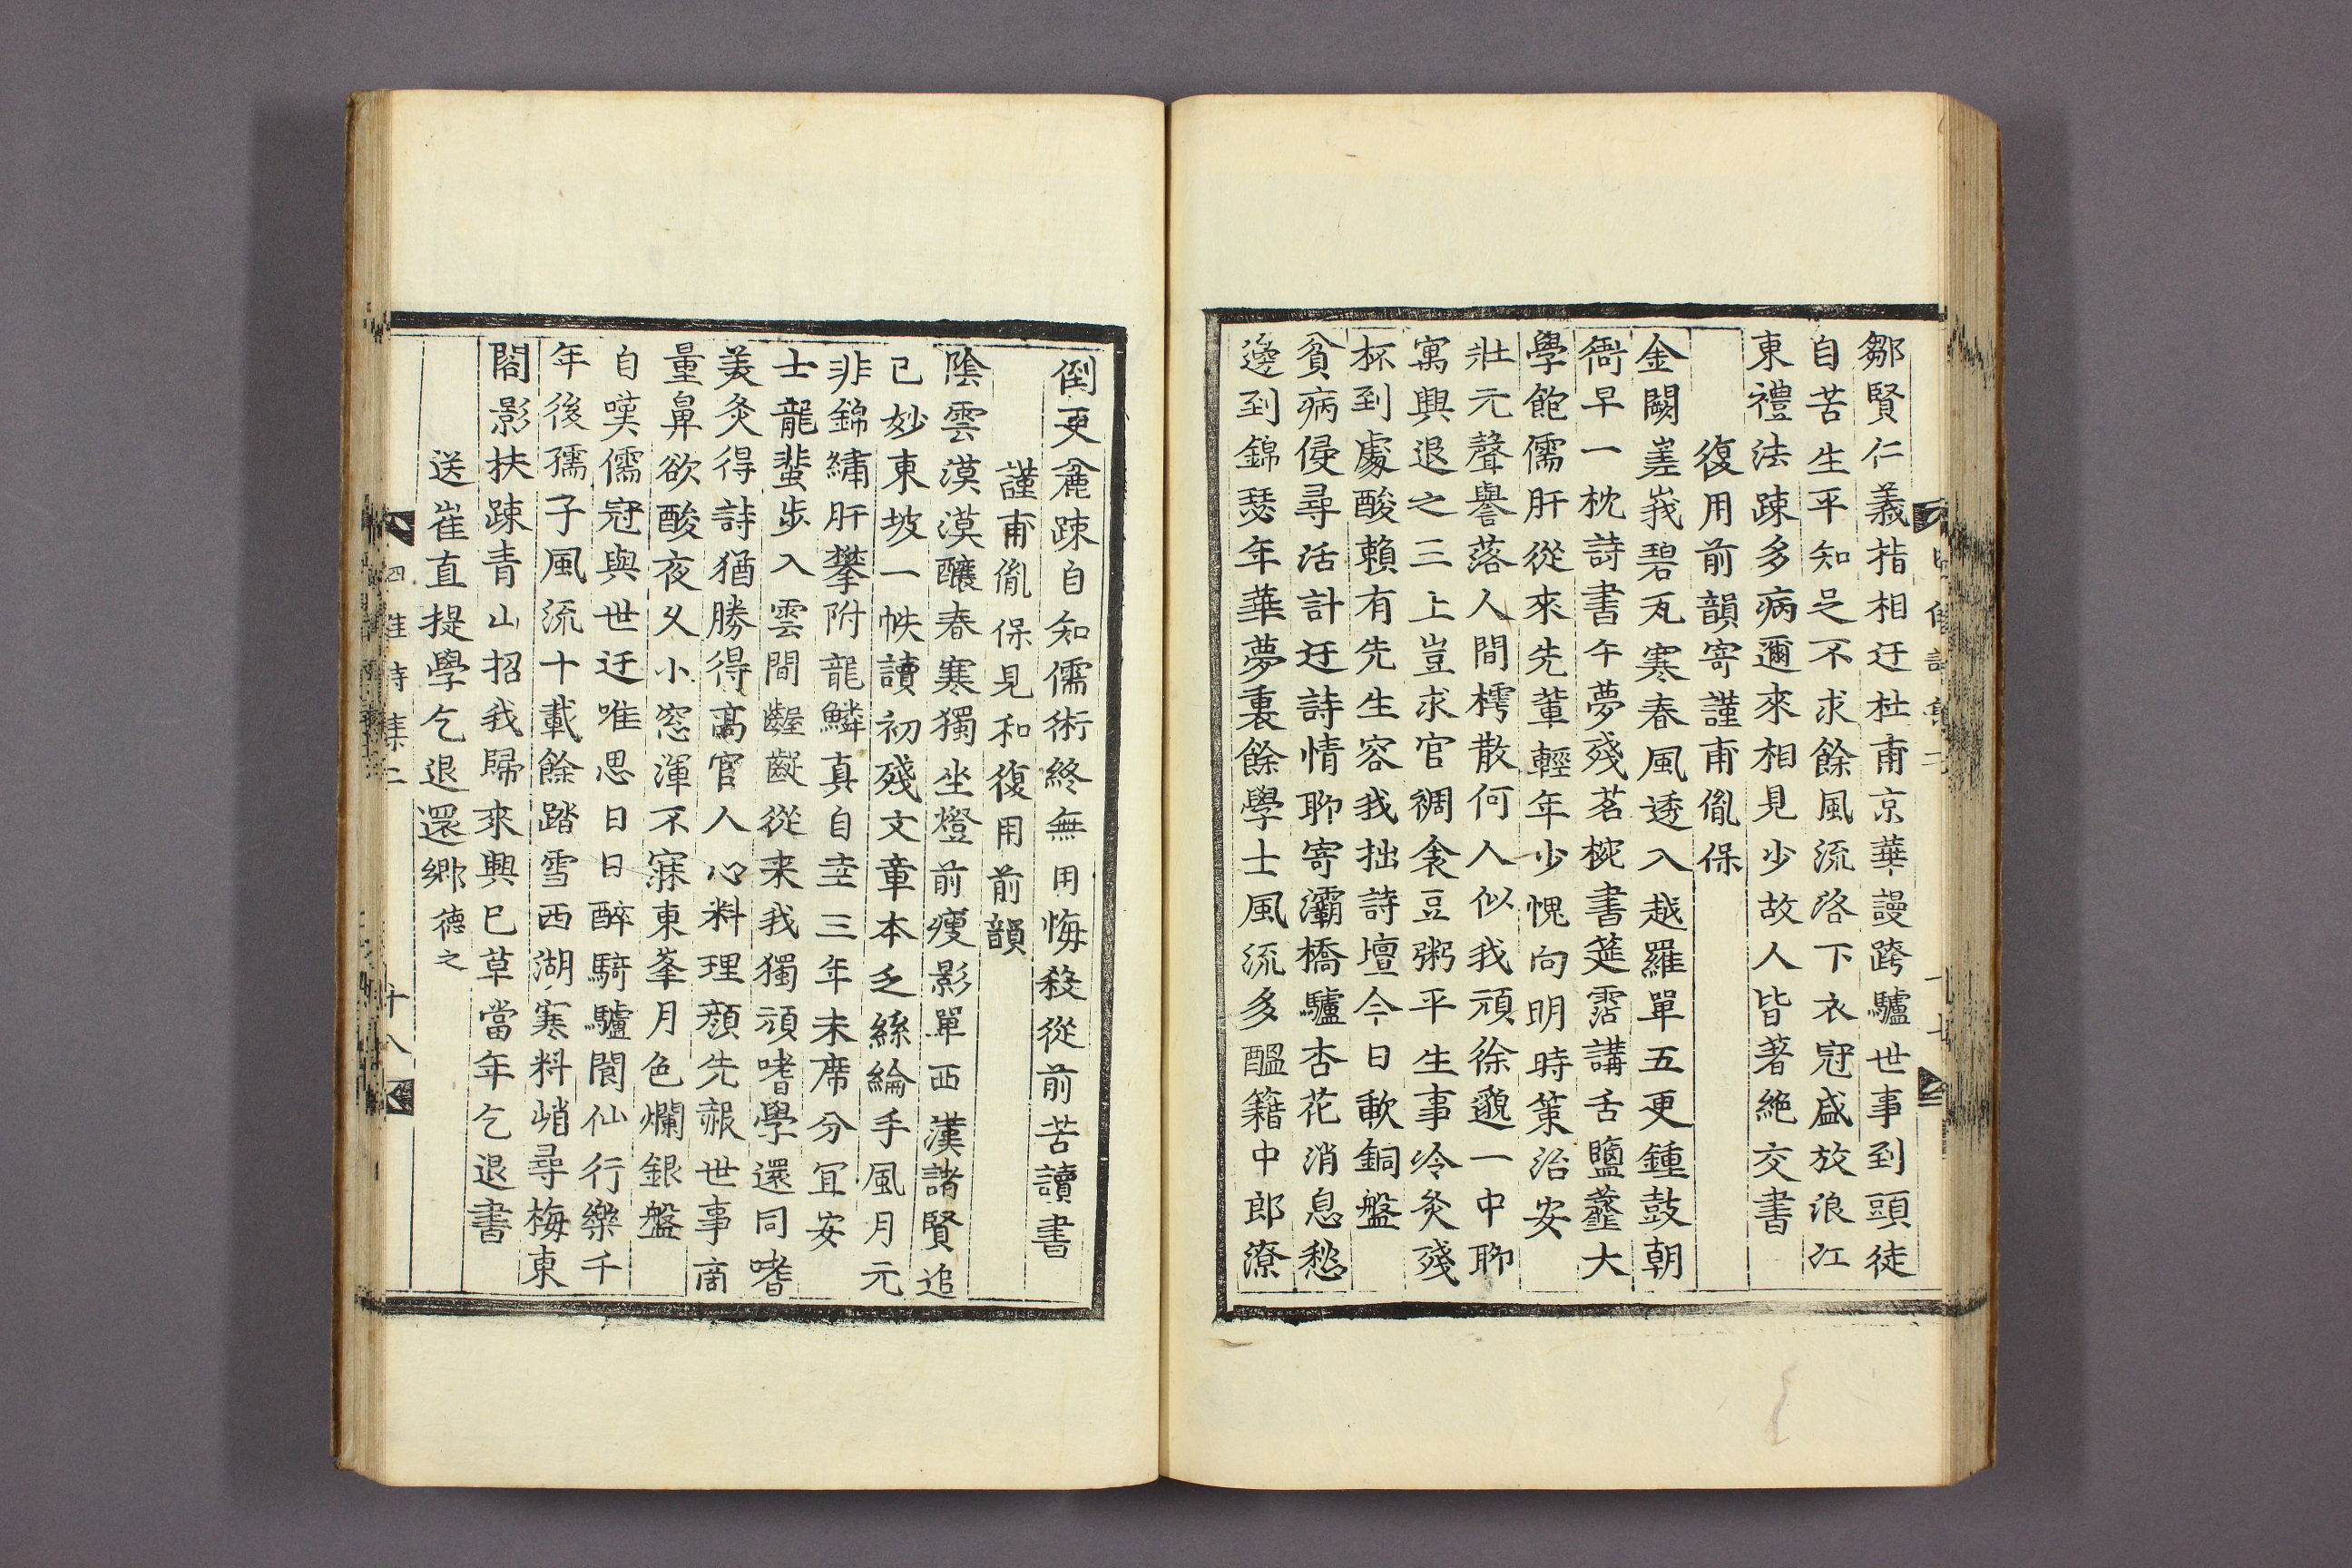 鄒賢仁義指相迂杜甫京華謾跨驢世事到頭徒
自苦生平知足不求餘風流洛下衣冠盛放浪江
東禮法踈多病邇來相見少故人皆著絶交書
復用前韻寄謹甫胤保
金闕嵳峩碧瓦寒春風透入越羅單五更鍾鼓朝
衙早一枕詩書午夢殘茗椀書筵霑講舌鹽虀大
學飽儒肝從來先輩輕年少愧向明時策治安
壯元聲譽落人間樗散何人似我頑徐邈一中聊
寓興退之三上豈求官裯衾豆粥平生事冷炙殘
杯到處酸賴有先生容我拙詩壇今日歃銅盤
貧病侵尋活計迂詩情聊寄灞橋驢杏花消息愁
邊到錦瑟年華夢裏餘學士風流多醞籍中郎潦
十七
倒更麁踈自知儒術終無用悔殺從前苦讀書
謹甫胤保見和復用前韻
陰雲漠漠釀春寒獨坐燈前瘦影單西漢諸賢追
已妙東坡一帙讀初殘文章本乏絲綸手風月元
非錦繡肝攀附龍鱗真自幸三年未席分冝安
士龍蜚步入雲間齷齪從来我獨頑嗜學還同嗜
美炙得詩猶勝得高官人心料理顔先赧世事商
量鼻欲酸夜久小窓渾不寐東峯月色爛銀盤
自嘆儒冠與世迂唯思日日醉騎驢閬仙行樂千
年後孺子風流十載餘踏雪西湖寒料峭尋梅東
閣影扶踈青山招我歸來興已草當年乞退書
送崔直提學乞退還鄉德之
四佳詩集二
十八